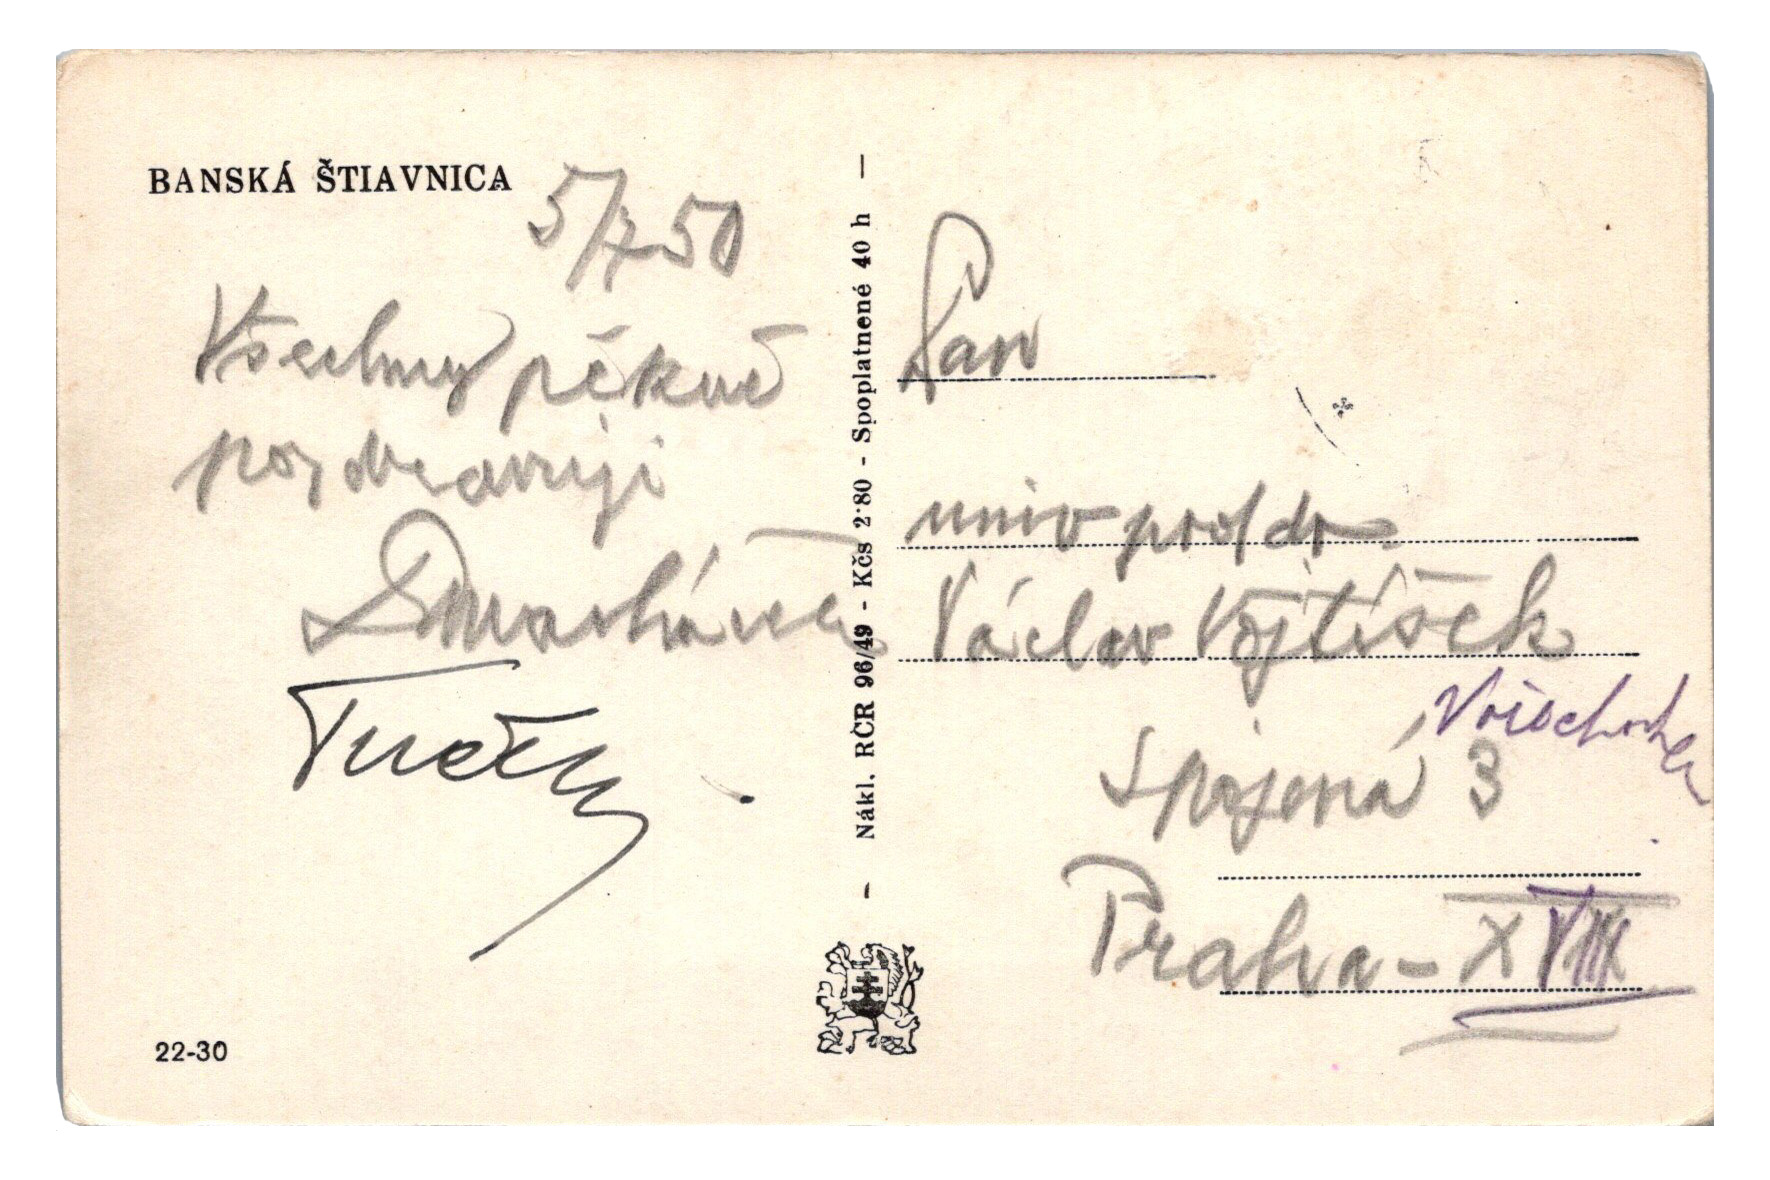 BANSKÁ ŠTIAVNICA
5/7 50
Všechny pěkně
pozdravují
Nákl. RČR 96/49 - Kčs 2·80 - Spoplatnené 40 h
Pan
univ prof dr
Václav Vojtíšek
Spojená 3
Praha - XVIII
22-30